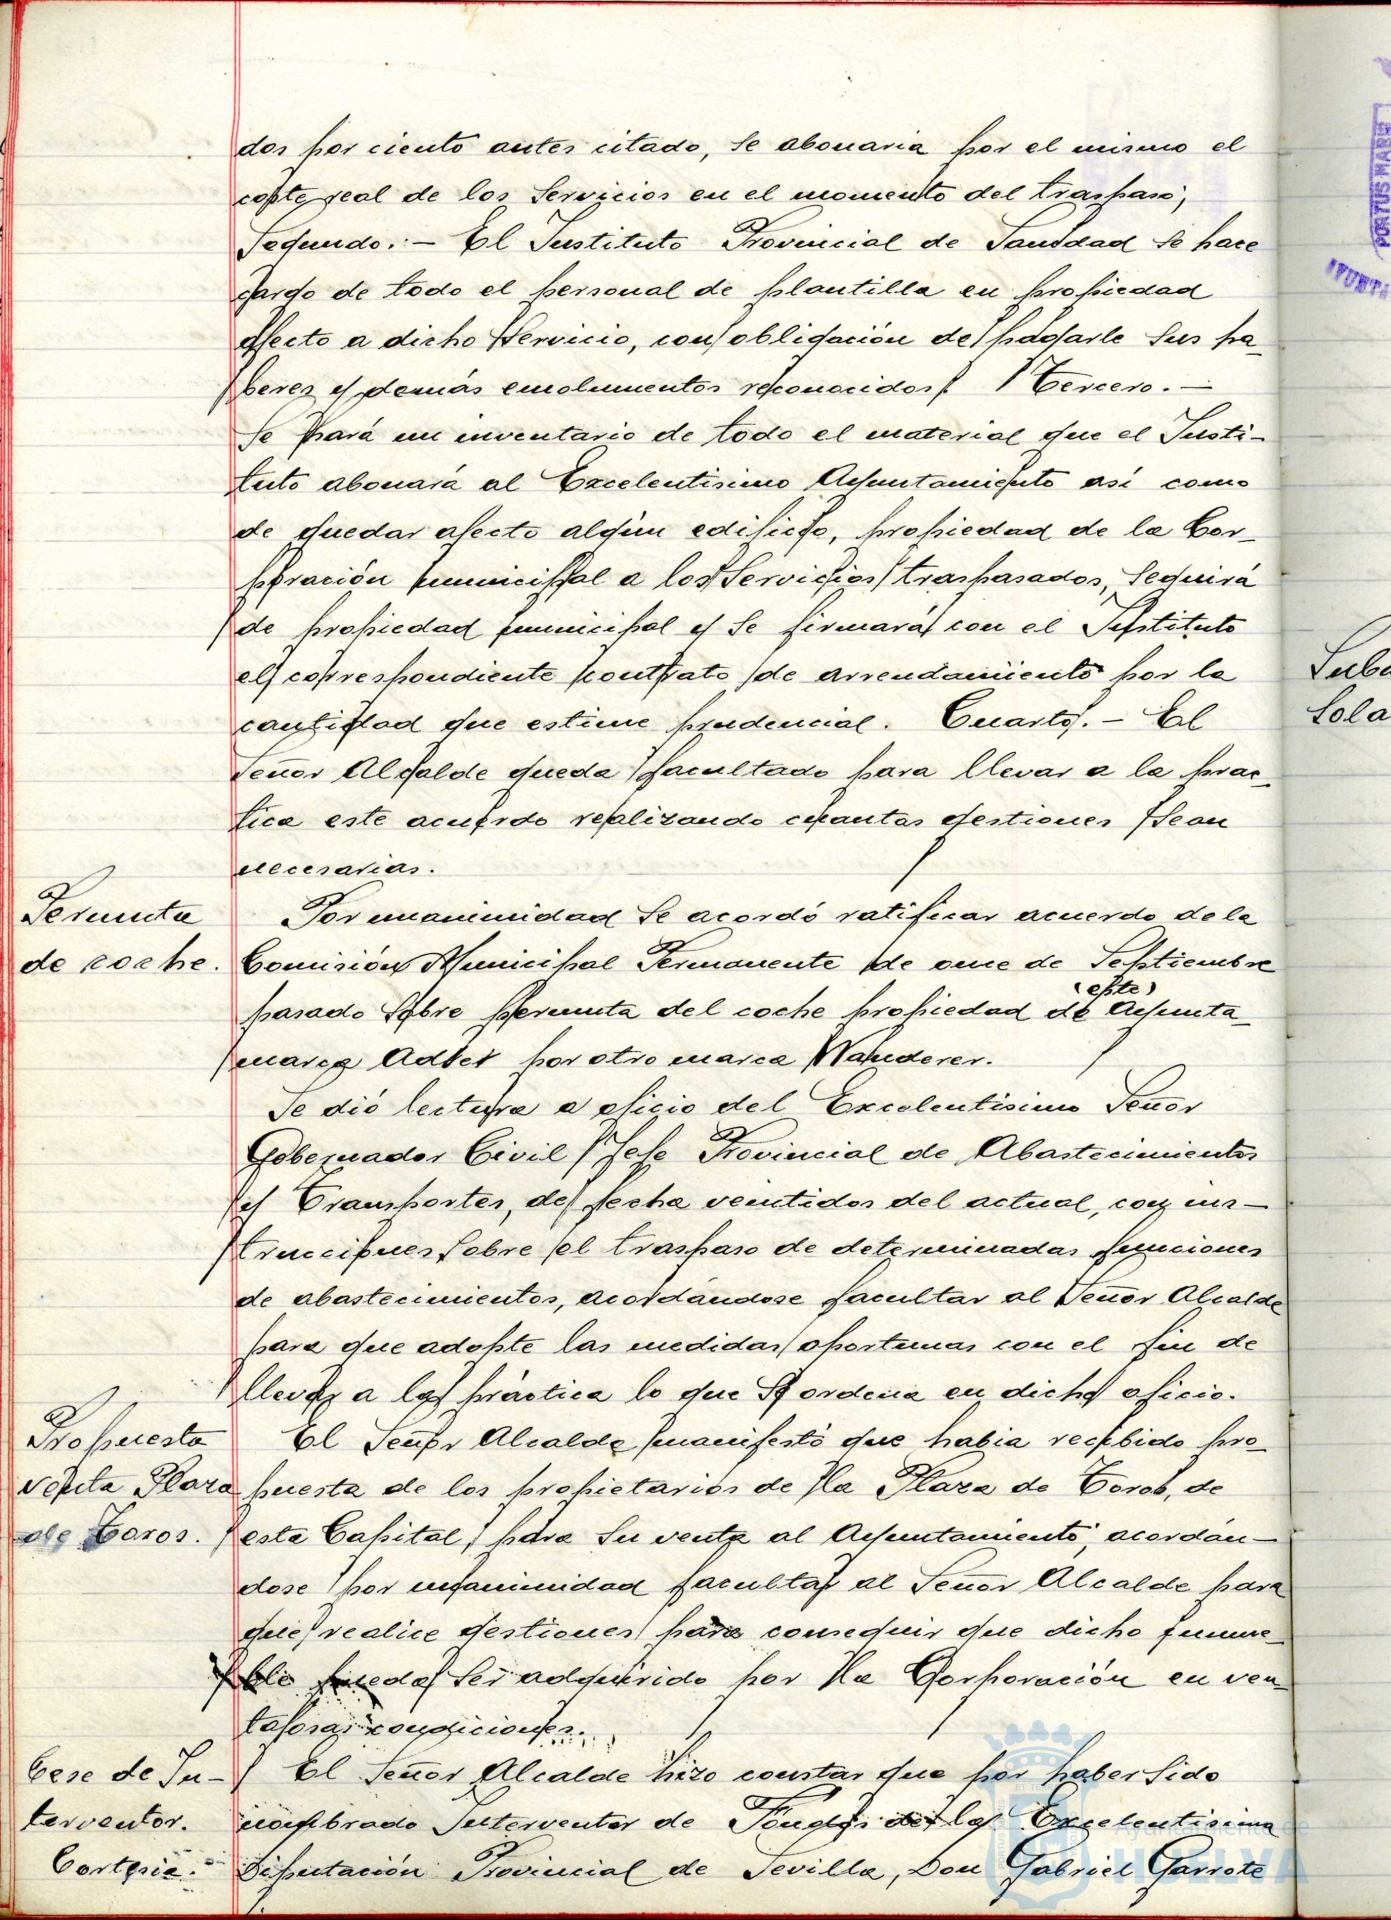 dos por ciento antes citado, se abonaria por el mismo el
coste real de los Servicios en el momento del traspaso;
Segundo.- El Instituto Provincial de Sanidad se hace
cargo de todo el personal de plantilla en propiedad
afecto a dicho Servicio, con obligación de pagarle sus ha-
beres y demás emolumentos reconocidos. Tercero.-
Se hará un inventario de todo el material que el Insti-
tuto abonará al Excelentisimo Ayuntamiento así como
de quedar afecto algún edificio, propiedad de la Cor-
poración municipal a los Servicios traspasados, seguirá
de propiedad municipal y se firmará con el Instituto
el correspondiente contrato de arrendamiento por la
cantidad que estime prudencial. Cuarto.- El
Señor Alcalde queda facultado para llevar a la prac-
tica este acuerdo realizando cuantas gestiones sean
necesarias.
Permuta
de coche.
Por unanimidad se acordó ratificar acuerdo de la
Comisión Municipal Permanente de once de Septiembre
pasado sobre permuta del coche propiedad de (este) Ayunta-
marca Adler por otro marca Wanderer.
Se dió lectura a oficio del Excelentisimo Señor
Gobernador Civil Jefe Provincial de Abastecimientos
y Transportes, de fecha veintidos del actual, con ins-
trucciones sobre el traspaso de determinadas funciones
de abastecimientos, acordándose facultar al Señor Alcalde
para que adopte las medidas oportunas con el fin de
llevar a la práctica lo que se ordena en dicho oficio.
Propuesta
venta Plaza
de Toros.
El Señor Alcalde manifestó que habia recibido pro-
puesta de los propietarios de la Plaza de Toros, de
esta Capital, para su venta al Ayuntamiento, acordán-
dose por unanimidad facultar al Señor Alcalde para
que realice gestiones para conseguir que dicho inmue-
ble pueda ser adquirido por la Corporación en ven-
tajosas condiciones.
Cese de In-
terventor.
Cortesia.
El Señor Alcalde hizo constar que por haber sido
nombrado Interventor de Fondos de la Excelentisima
Diputación Provincial de Sevilla, Don Gabriel Garrote
Ayuntamiento de
HUELVA
PORTUS MARIS